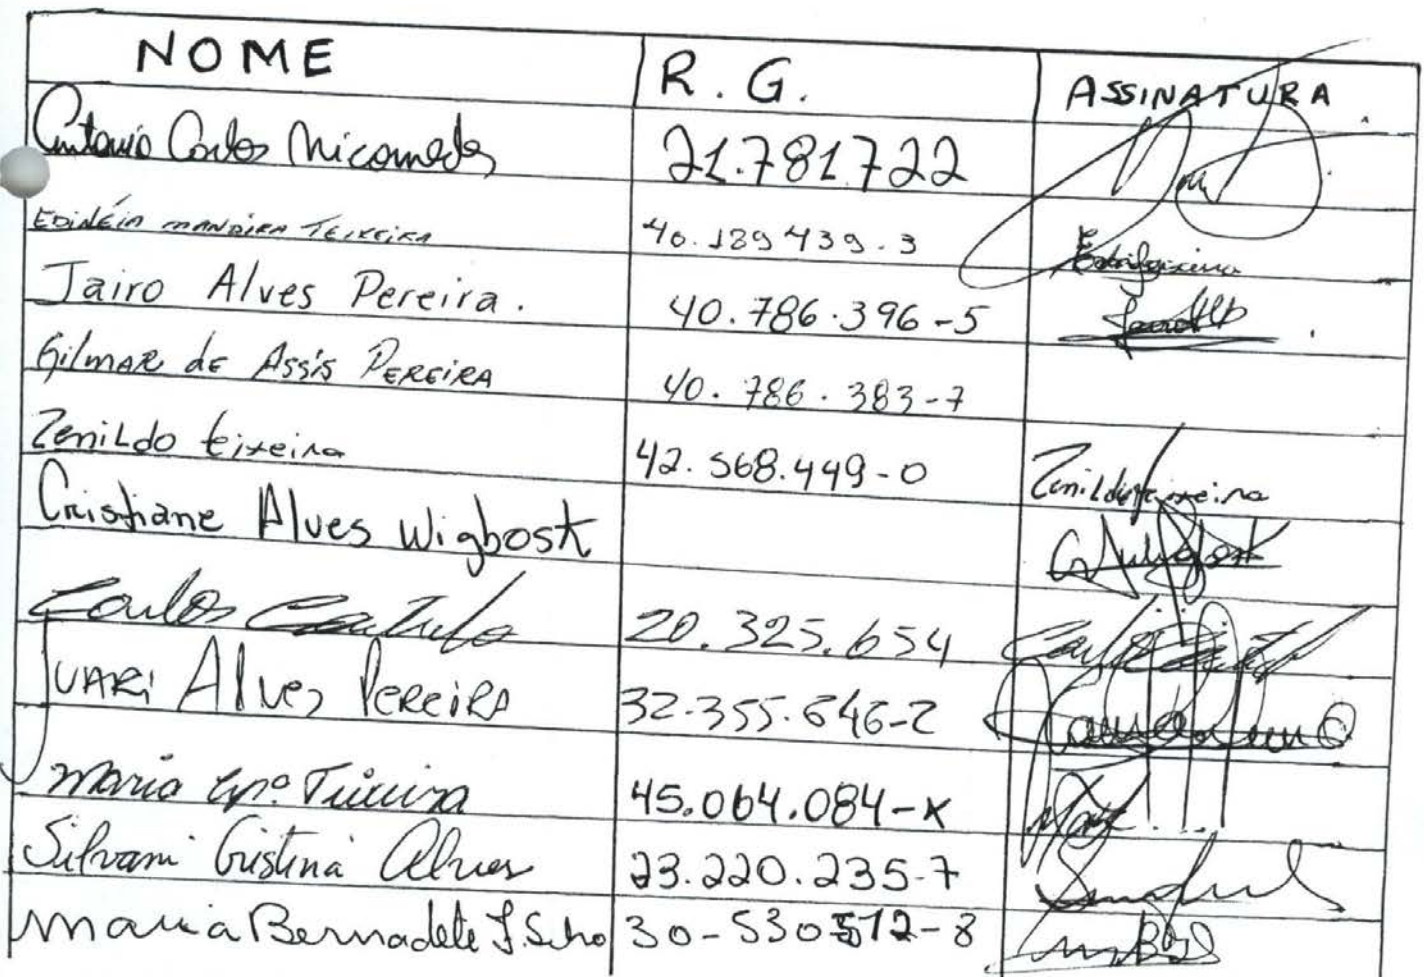 NOME R.G. ASSINATURA
Antonio Carlos Nicomedes 21.781722
EDINÉIA MANDIRA TEIXEIRA 40.189439.3
Jairo Alves Pereira. 40.786.396-5
Gilmar de Assis Pereira 40.786.383-7
Zenildo teixeira 42.568.449-0 Zenildo teixeira
Cristiane Alves Wigbost
Carlos 20.325.654
JUARI Alves Pereira 32.355.646-2
Maria Apª. Teixeira 45.064.084-X
Silvani Cristina Alves 23.220.235-7
Maria Bernadete 30-530512-8